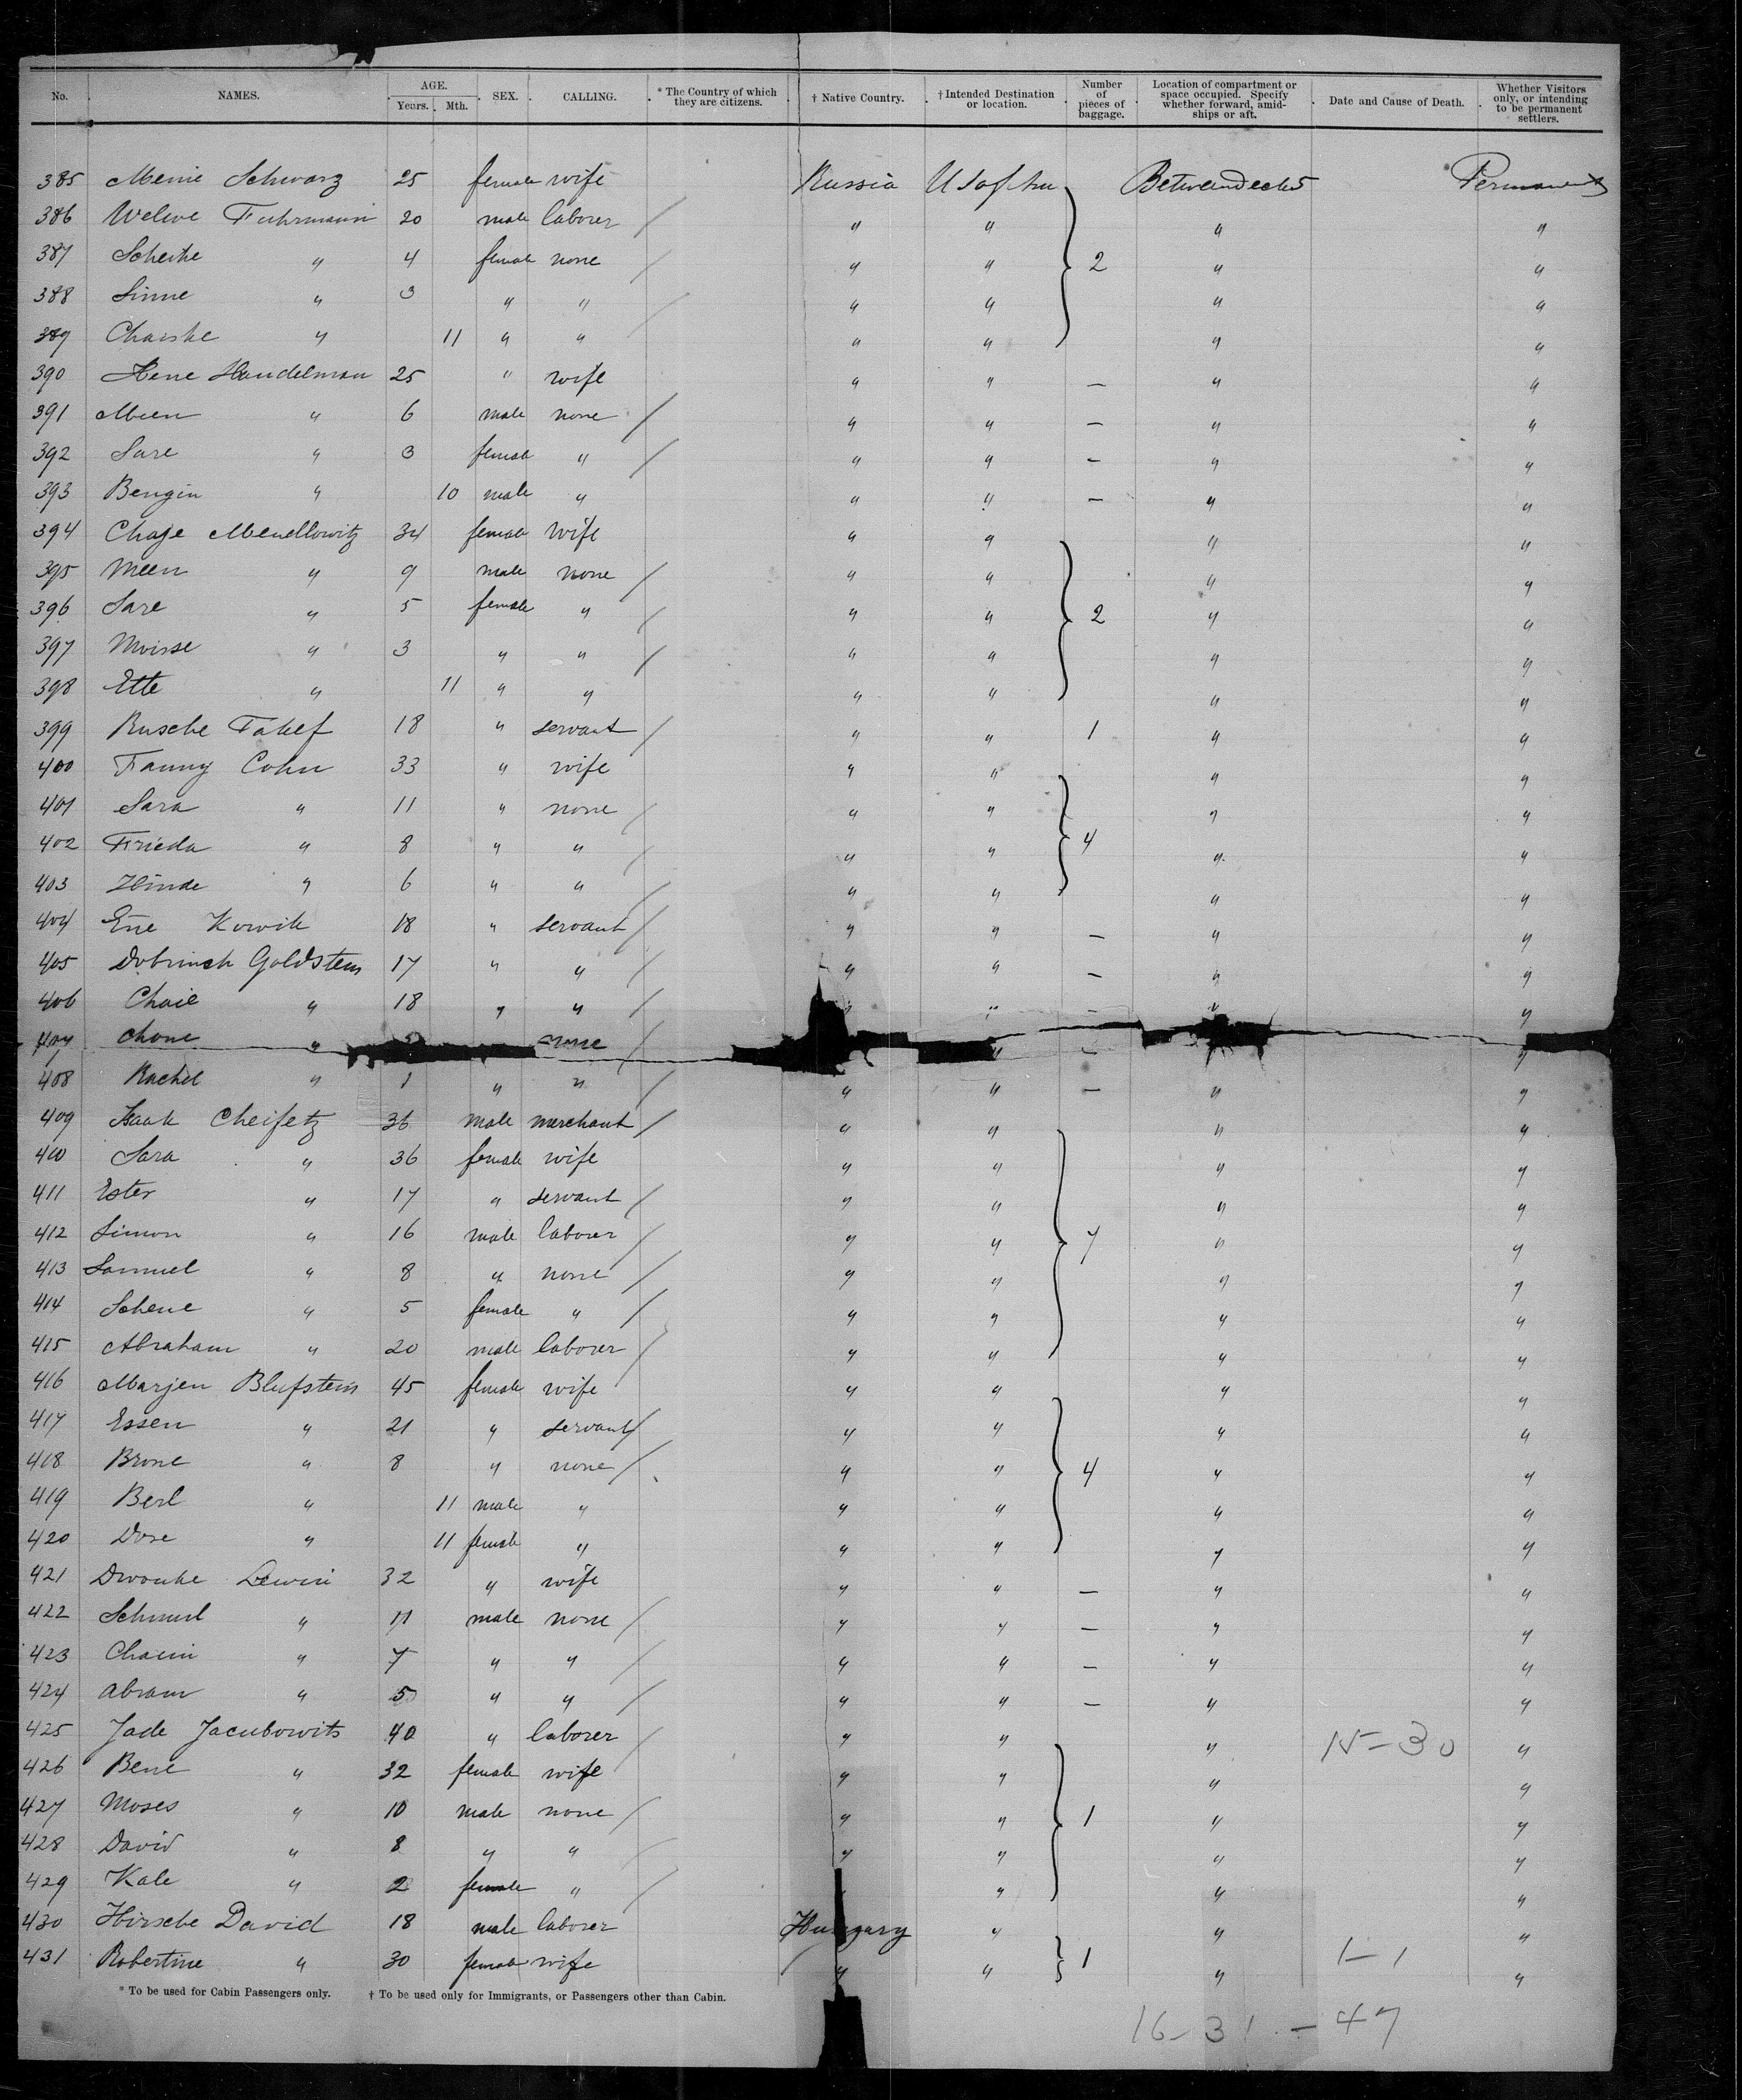 No. NAMES. AGE. Years. Mth. SEX. CALLING. * The Country of which they are citizens. † Native Country. † Intended Destination or location. Number of pieces of baggage. Location of compartment or space occupied. Specify whether forward, amidships or aft. Date and Cause of Death. Whether Visitors only, or intending to be permanent settlers.
385 Schwarz 25 female wife Russia Betweendecks Permanent
386 Welwe Fuhrmann 20 male laborer " " " "
387 Scheike " 4 female none " " 2 " "
388 Sinne " 3 " " " " " "
389 Chaiske " 11 " " " " " "
390 Hene Handelman 25 " wife " " — " "
391 " 6 male none " " — " "
392 Sare " 3 female " " " — " "
393 Bengin " 10 male " " " — " "
394 Chaje Mendlowitz 34 female wife " " " "
395 " 9 male none " " " "
396 Sare " 5 female " " " 2 " "
397 Moisse " 3 " " " " " "
398 Ette " 11 " " " " " "
399 Rusche 18 " servant " " 1 " "
400 Fanny Cohn 33 " wife " " " "
401 Sara " 11 " none " " " "
402 Frieda " 8 " " " " 4 " "
403 Hinde " 6 " " " " " "
404 Kowik 18 " servant " " — " "
405 Goldstein 17 " " " " — " "
406 Chaie " 18 " " " " — " "
407 Chone " none " — "
408 Rachel " 1 " " " " — " "
409 Isaak Cheifetz 36 male merchant " " " "
410 Sara " 36 female wife " " " "
411 Ester " 17 " servant " " " "
412 Simon " 16 male laborer " " 7 " "
413 Samuel " 8 " none " " " "
414 Schene " 5 female " " " " "
415 Abraham " 20 male laborer " " " "
416 Marjen Blufstein 45 female wife " " " "
417 Essen " 21 " servant " " " "
418 Brone " 8 " none " " 4 " "
419 Berl " 11 male " " " " "
420 Dore " 11 female " " " " "
421 Lewin 32 " wife " " — " "
422 Schmul " 11 male none " " — " "
423 Chaim " 7 " " " " — " "
424 Abram " 5 " " " " — " "
425 Jacubowits 40 " laborer " " " 15-30 "
426 Bene " 32 female wife " " " "
427 Moses " 10 male none " " 1 " "
428 David " 8 " " " " " "
429 Kale " 2 female " " " "
430 Hirsche David 18 male laborer Hungary " " "
431 Robertine " 30 female wife " " 1 " 1-1 "
* To be used for Cabin Passengers only. † To be used only for Immigrants, or Passengers other than Cabin.
16-31-47